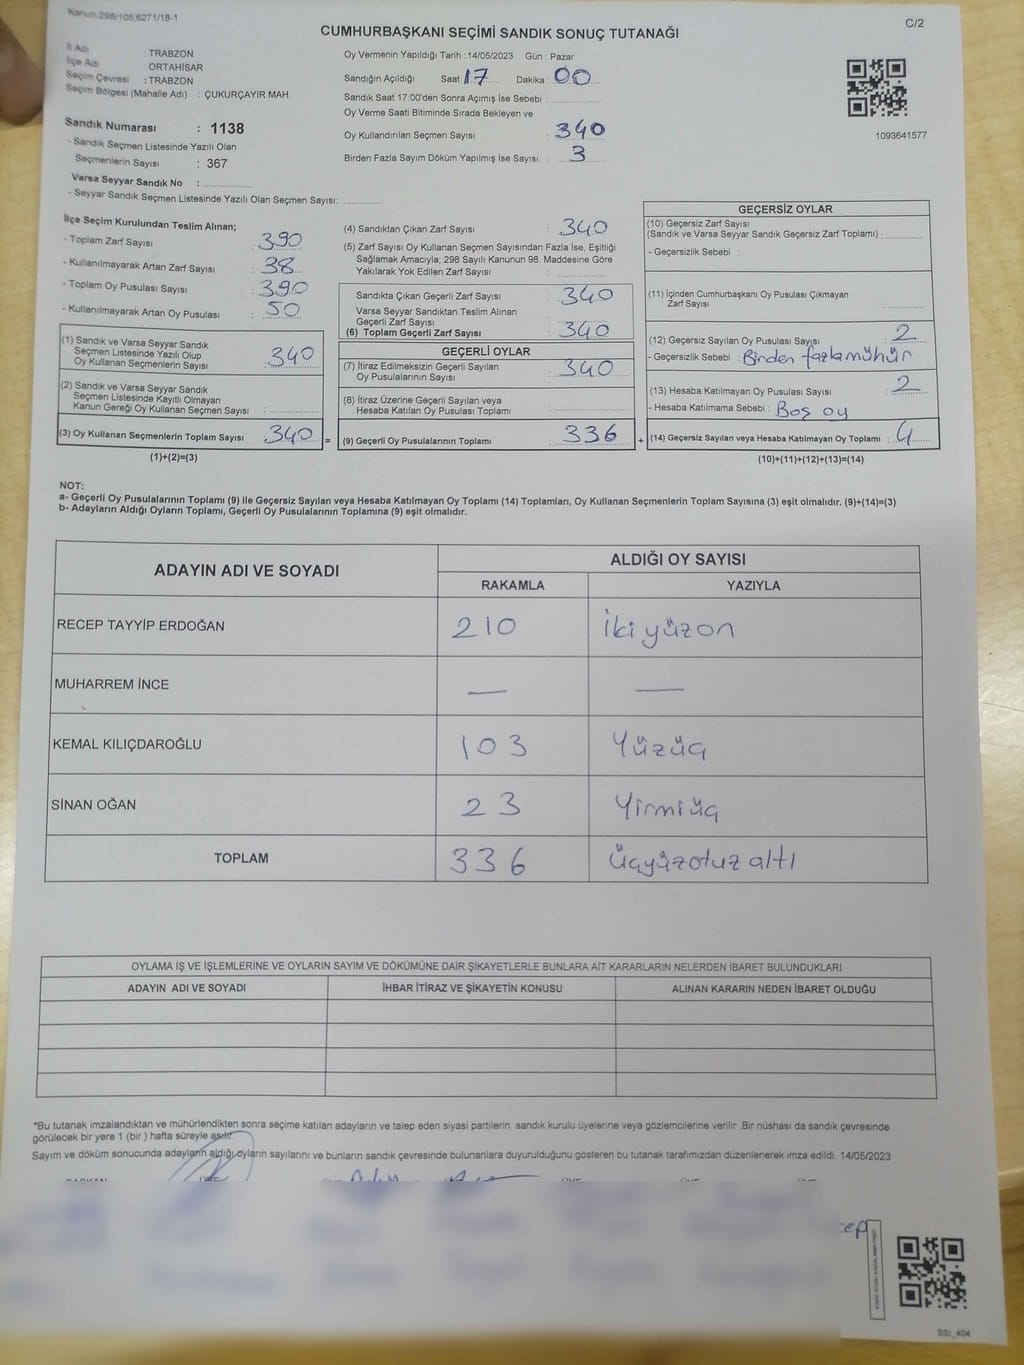 Kanun:298/105,6271/18-1
C/2
CUMHURBAŞKANI SEÇİMİ SANDIK SONUÇ TUTANAĞI
İl Adı : TRABZON
İlçe Adı : ORTAHİSAR
Seçim Çevresi : TRABZON
Seçim Bölgesi (Mahalle Adı) : ÇUKURÇAYIR MAH.
Sandık Numarası : 1138
- Sandık Seçmen Listesinde Yazılı Olan
Seçmenlerin Sayısı : 367
Varsa Seyyar Sandık No : ..............
- Seyyar Sandık Seçmen Listesinde Yazılı Olan Seçmen Sayısı: ............
Oy Vermenin Yapıldığı Tarih : 14/05/2023 Gün : Pazar
Sandığın Açıldığı Saat 17 Dakika : 00
Sandık Saat 17:00'den Sonra Açımış İse Sebebi : ..............
Oy Verme Saati Bitiminde Sırada Bekleyen ve
Oy Kullandırılan Seçmen Sayısı : 340
Birden Fazla Sayım Döküm Yapılmış İse Sayısı : 3
1093641577
İlçe Seçim Kurulundan Teslim Alınan;
- Toplam Zarf Sayısı : 390
- Kullanılmayarak Artan Zarf Sayısı : 38
- Toplam Oy Pusulası Sayısı : 390
- Kullanılmayarak Artan Oy Pusulası : 50
(1) Sandık ve Varsa Seyyar Sandık
Seçmen Listesinde Yazılı Olup
Oy Kullanan Seçmenlerin Sayısı : 340
(2) Sandık ve Varsa Seyyar Sandık
Seçmen Listesinde Kayıtlı Olmayan
Kanun Gereği Oy Kullanan Seçmen Sayısı : ..............
(3) Oy Kullanan Seçmenlerin Toplam Sayısı : 340 =
(1)+(2)=(3)
(4) Sandıktan Çıkan Zarf Sayısı : 340
(5) Zarf Sayısı Oy Kullanan Seçmen Sayısından Fazla İse, Eşitliği
Sağlamak Amacıyla; 298 Sayılı Kanunun 98. Maddesine Göre
Yakılarak Yok Edilen Zarf Sayısı : ..............
Sandıkta Çıkan Geçerli Zarf Sayısı : 340
Varsa Seyyar Sandıktan Teslim Alınan
Geçerli Zarf Sayısı :
(6) Toplam Geçerli Zarf Sayısı : 340
GEÇERLİ OYLAR
(7) İtiraz Edilmeksizin Geçerli Sayılan
Oy Pusulalarının Sayısı : 340
(8) İtiraz Üzerine Geçerli Sayılan veya
Hesaba Katılan Oy Pusulası Toplamı : ..............
(9) Geçerli Oy Pusulalarının Toplamı : 336 +
GEÇERSİZ OYLAR
(10) Geçersiz Zarf Sayısı
(Sandık ve Varsa Seyyar Sandık Geçersiz Zarf Toplamı) : ..........
- Geçersizlik Sebebi :
(11) İçinden Cumhurbaşkanı Oy Pusulası Çıkmayan
Zarf Sayısı : ..........
(12) Geçersiz Sayılan Oy Pusulası Sayısı : 2
- Geçersizlik Sebebi : Birden fazla mühür
(13) Hesaba Katılmayan Oy Pusulası Sayısı : 2
- Hesaba Katılmama Sebebi : Boş oy
(14) Geçersiz Sayılan veya Hesaba Katılmayan Oy Toplamı : 4
(10)+(11)+(12)+(13)=(14)
NOT:
a- Geçerli Oy Pusulalarının Toplamı (9) ile Geçersiz Sayılan veya Hesaba Katılmayan Oy Toplamı (14) Toplamları, Oy Kullanan Seçmenlerin Toplam Sayısına (3) eşit olmalıdır. (9)+(14)=(3)
b- Adayların Aldığı Oyların Toplamı, Geçerli Oy Pusulalarının Toplamına (9) eşit olmalıdır.
ADAYIN ADI VE SOYADI ALDIĞI OY SAYISI
RAKAMLA YAZIYLA
RECEP TAYYİP ERDOĞAN 210 İkiyüzon
MUHARREM İNCE — —
KEMAL KILIÇDAROĞLU 103 Yüzüç
SİNAN OĞAN 23 Yirmiüç
TOPLAM 336 Üçyüzotuz altı
OYLAMA İŞ VE İŞLEMLERİNE VE OYLARIN SAYIM VE DÖKÜMÜNE DAİR ŞİKAYETLERLE BUNLARA AİT KARARLARIN NELERDEN İBARET BULUNDUKLARI
ADAYIN ADI VE SOYADI İHBAR İTİRAZ VE ŞİKAYETİN KONUSU ALINAN KARARIN NEDEN İBARET OLDUĞU
*Bu tutanak imzalandıktan ve mühürlendikten sonra seçime katılan adayların ve talep eden siyasi partilerin sandık kurulu üyelerine veya gözlemcilerine verilir .Bir nüshası da sandık çevresinde
görülecek bir yere 1 (bir ) hafta süreyle asılır.
Sayım ve döküm sonucunda adayların aldığı oyların sayılarını ve bunların sandık çevresinde bulunanlara duyurulduğunu gösteren bu tutanak tarafımızdan düzenlenerek imza edildi. 14/05/2023
SSI_404